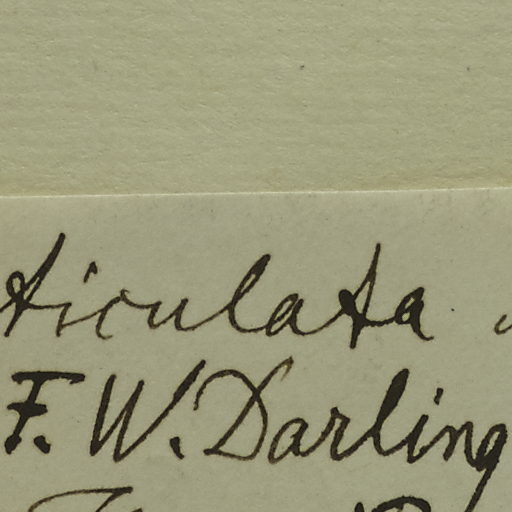 ticulata
F. W. Darling